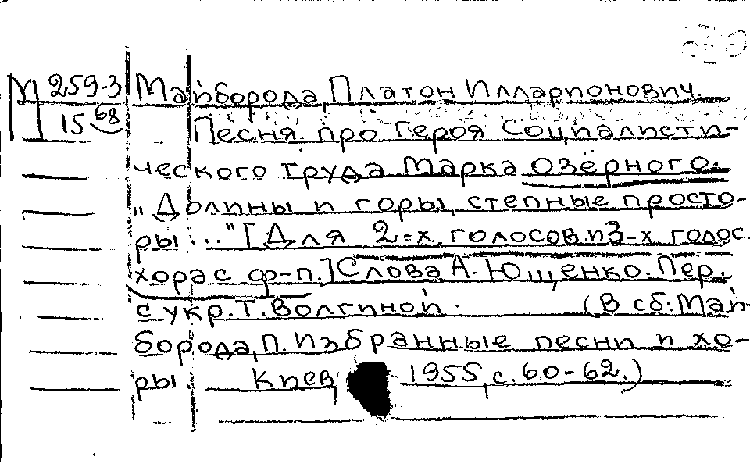 М 259-3
15 68
Майборода, Платон Илларионович.
Песня про Героя Социалисти-
ческого труда Марка Озёрного.
„Долины и горы, степные просто-
ры..." [Для 2-х голосов. и 3-х голос.
хора с ф-п.] Слова А. Ющенко. Пер.
с укр. Т. Волгиной. (В сб: Май-
борода, П. Избранные песни и хо-
ры Киев, 1955, с. 60-62.)